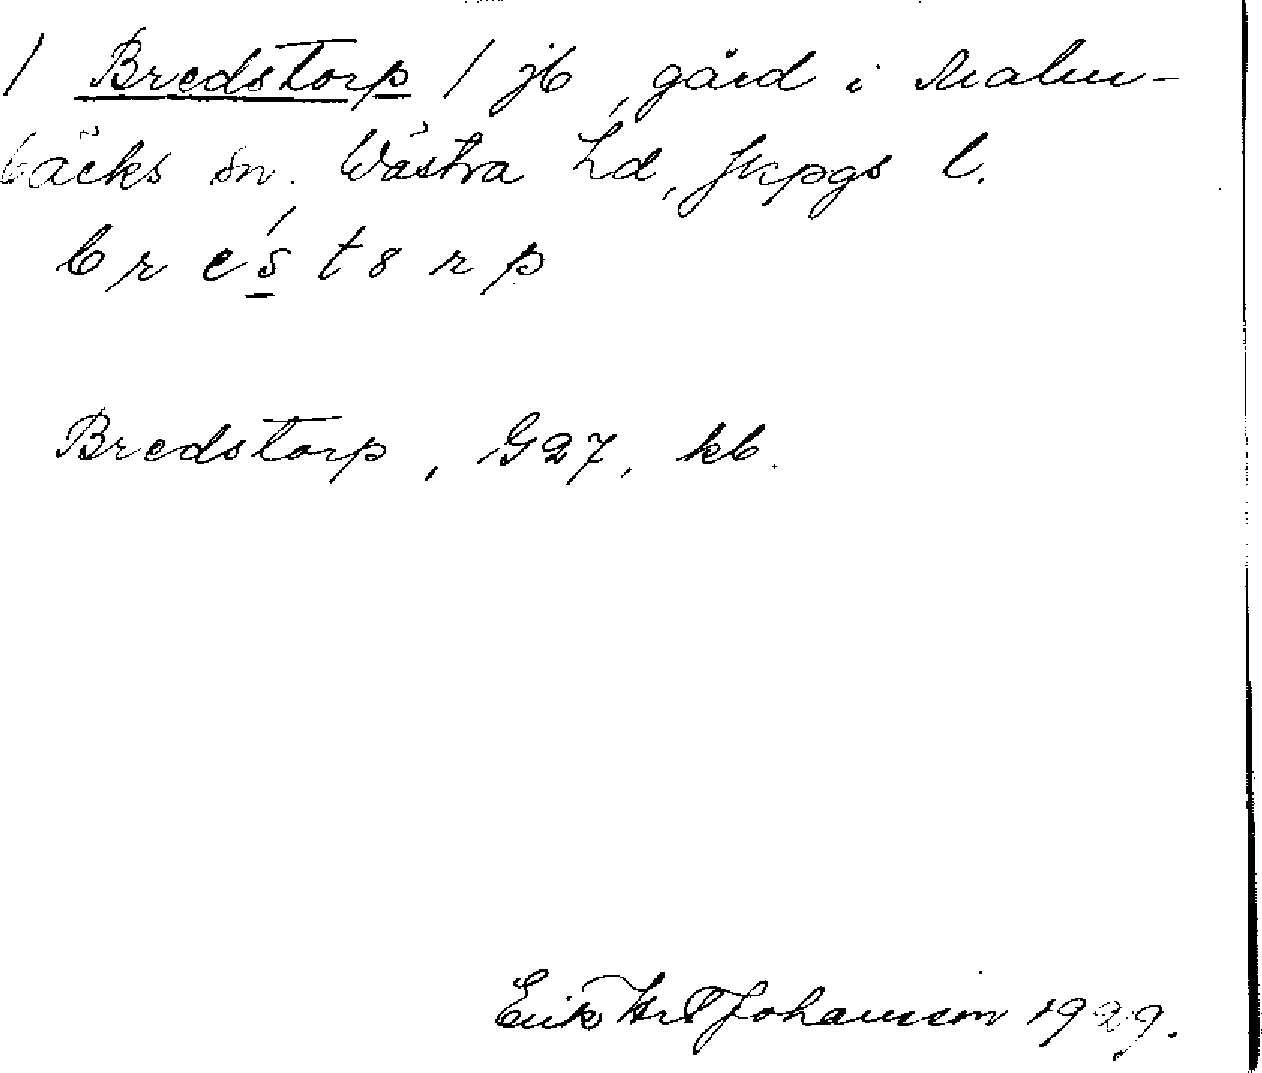 / Bredstorp / jb, gård i Malm-
bäcks sn. Västra hd, Jkpgs l.
bréstorp
Bredstorp, G27, kb.
Erik Johansson 1929.